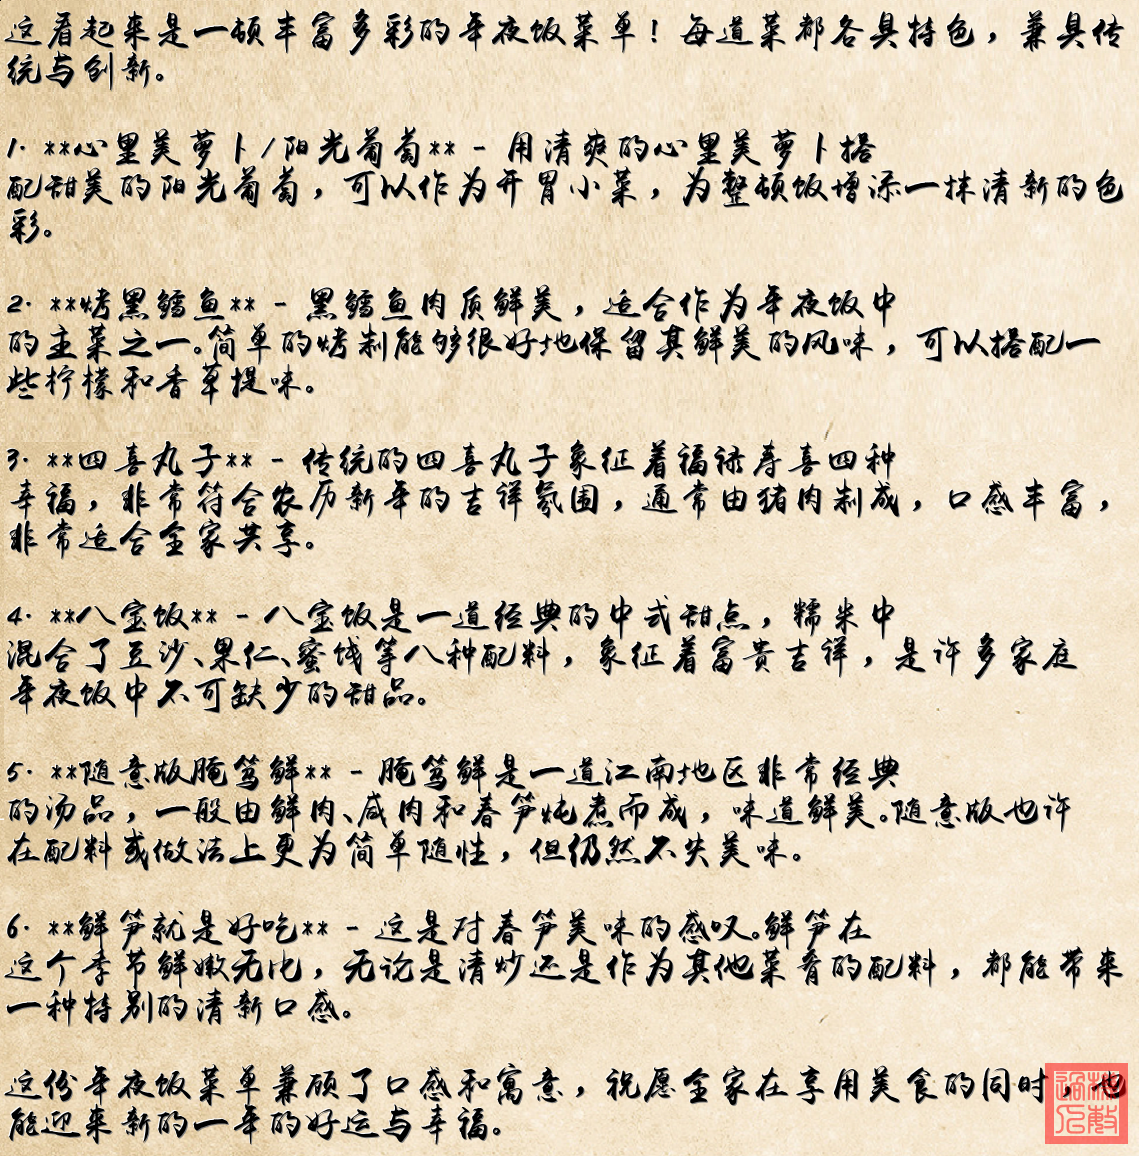 这看起来是一顿丰富多彩的年夜饭菜单！每道菜都各具特色，兼具传
统与创新。
1. **心里美萝卜/阳光葡萄** - 用清爽的心里美萝卜搭
配甜美的阳光葡萄，可以作为开胃小菜，为整顿饭增添一抹清新的色
彩。
2. **烤黑鳕鱼** - 黑鳕鱼肉质鲜美，适合作为年夜饭中
的主菜之一。简单的烤制能够很好地保留其鲜美的风味，可以搭配一
些柠檬和香草提味。
3. **四喜丸子** - 传统的四喜丸子象征着福禄寿喜四种
幸福，非常符合农历新年的吉祥氛围，通常由猪肉制成，口感丰富，
非常适合全家共享。
4. **八宝饭** - 八宝饭是一道经典的中式甜点，糯米中
混合了豆沙、果仁、蜜饯等八种配料，象征着富贵吉祥，是许多家庭
年夜饭中不可缺少的甜品。
5. **随意版腌笃鲜** - 腌笃鲜是一道江南地区非常经典
的汤品，一般由鲜肉、咸肉和春笋炖煮而成，味道鲜美。随意版也许
在配料或做法上更为简单随性，但仍然不失美味。
6. **鲜笋就是好吃** - 这是对春笋美味的感叹。鲜笋在
这个季节鲜嫩无比，无论是清炒还是作为其他菜肴的配料，都能带来
一种特别的清新口感。
这份年夜饭菜单兼顾了口感和寓意，祝愿全家在享用美食的同时，也
能迎来新的一年的好运与幸福。